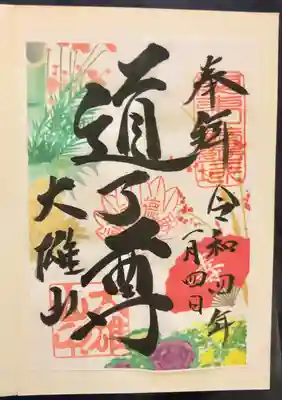 奉拝
令和四年
一月四日
道了尊
大雄山